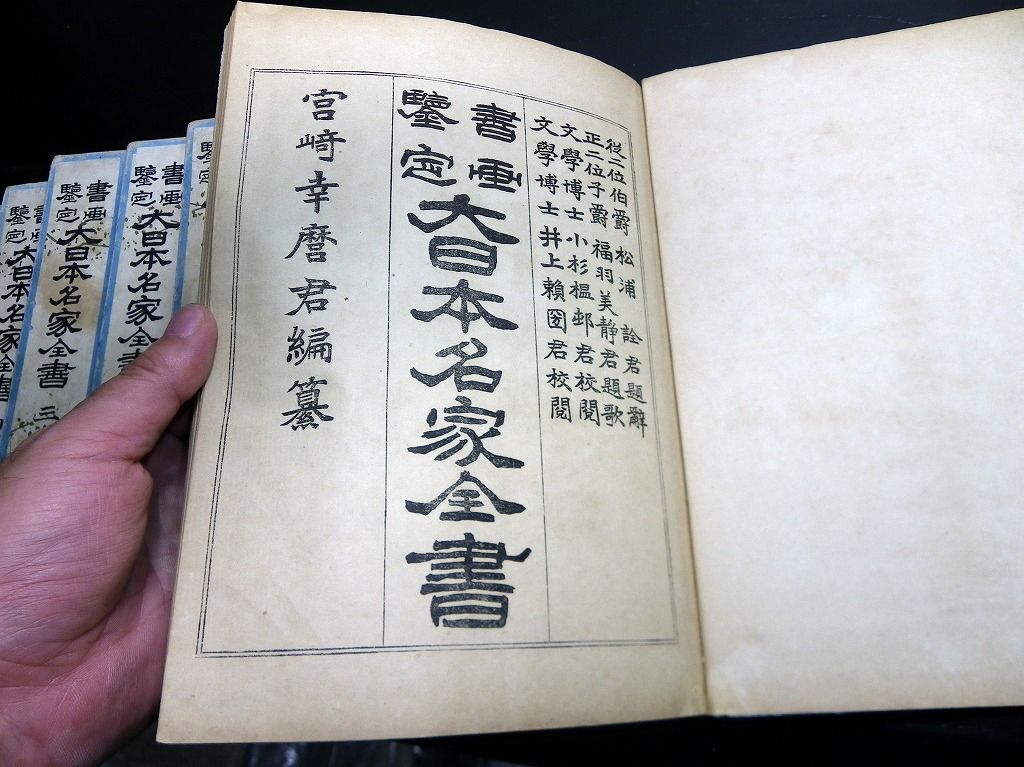 從二位伯爵 松浦 詮君題辭
正二位子爵 福羽美靜君題歌
文學博士 小杉榲邨君校閱
文學博士 井上賴囶君校閱
書画
鑒定
大日本名家全書
宮﨑幸麿君編纂
鑒定
書画
鑒定
大日本名家全書
書画
鑒定
大日本名家全書 三
書画
鑒定
大日本名家全書